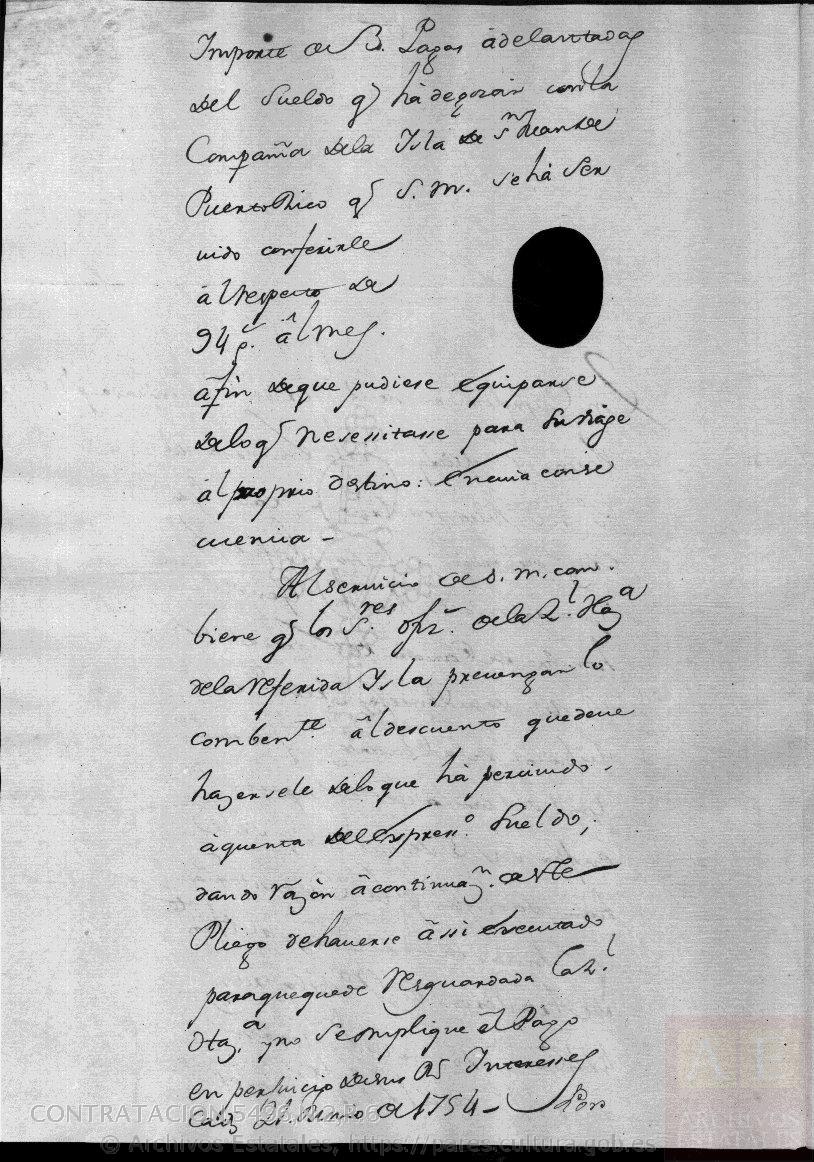 Importe de 3. Pagas adelantadas
del sueldo q.^e há de gozar con la
Compañia dela Isla de S.^n Juan de
Puerto Rico q.^e S. M. se há Ser
vido conferirle
ál respecto de
94 p.^s âl mes.
áfin deque pudiese equiparse
delo q.^e Nesessitasse para su viage
ál proprio destino: En cuia conse
cuencia -
Al servicio de S. M. com.
biene q.^e los S.^res ofiz.^s dela R.^l Haz.^a
dela referida Isla prevengan lo
comben.^te âl descuento quedeve
hazersele delo que há percivido
áquenta del Expres.^o Sueldo,
dando razón âcontinuaz.^n de este
Pliego dehaverse âssi Executado
paraquequede Resguardada la R.^l
Haz.^a y no se omplique el Pago
en perjuicio de sus R.^s Interesses
Cadiz de 1754 - Por
CONTRATACION,5426,N.2,R.6
© Archivos Estatales, https://pares.cultura.gob.es
AE
ARCHIVOS
ESTATALES